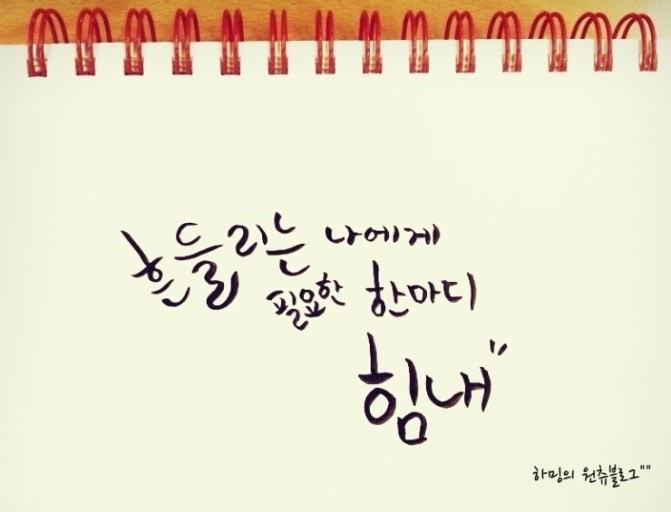 흔들리는 나에게
필요한 한마디
힘내"
하밍의 원츄블로그""